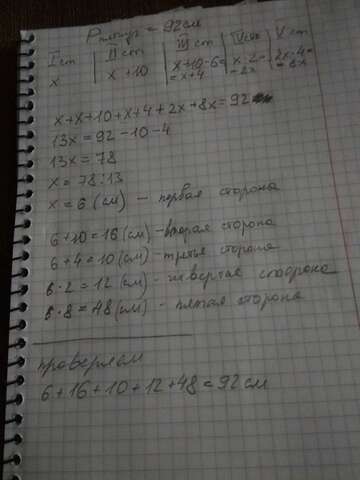 Pпятиуг = 92см
I ст | II ст | III ст | IV ст | V ст
x | x+10 | x+10-6= | x·2= | 2x·4=
=x+4 | =2x | =8x
x+x+10+x+4+2x+8x=92
13x=92-10-4
13x=78
x=78:13
x=6(см) - первая сторона
6+10=16(см) - вторая сторона
6+4=10(см) - третья сторона
6·2=12(см) - четвертая сторона
6·8=48(см) - пятая сторона
проверяем
6+16+10+12+48=92см